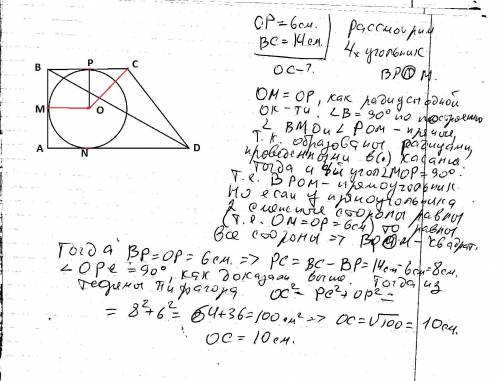 B P C
M O
A N D
OP = 6 см.
BC = 14 см.
OC - ?
Рассмотрим
4х угольник
BPOM.
OM = OP, как радиусы одной
ок-ти. ∠B = 90° по построению
∠ BMO и ∠ POM - прямые,
т.к. образованы радиусами,
проведенными в (.) касания
Тогда и 4й угол ∠MOP = 90°.
т.е. BPOM - прямоугольник.
Но если у прямоугольника
2 смежные стороны равны
(т.е. OM = OP = 6см) то равны
все стороны => BPOM - квадрат.
Тогда BP = OP = 6 см. => PC = BC - BP = 14см - 6см = 8см.
∠ OPC = 90°, как доказали выше. Тогда из
теоремы Пифагора OC² = PC² + OP² =
= 8² + 6² = 64 + 36 = 100 см² => OC = √100 = 10 см.
OC = 10 см.